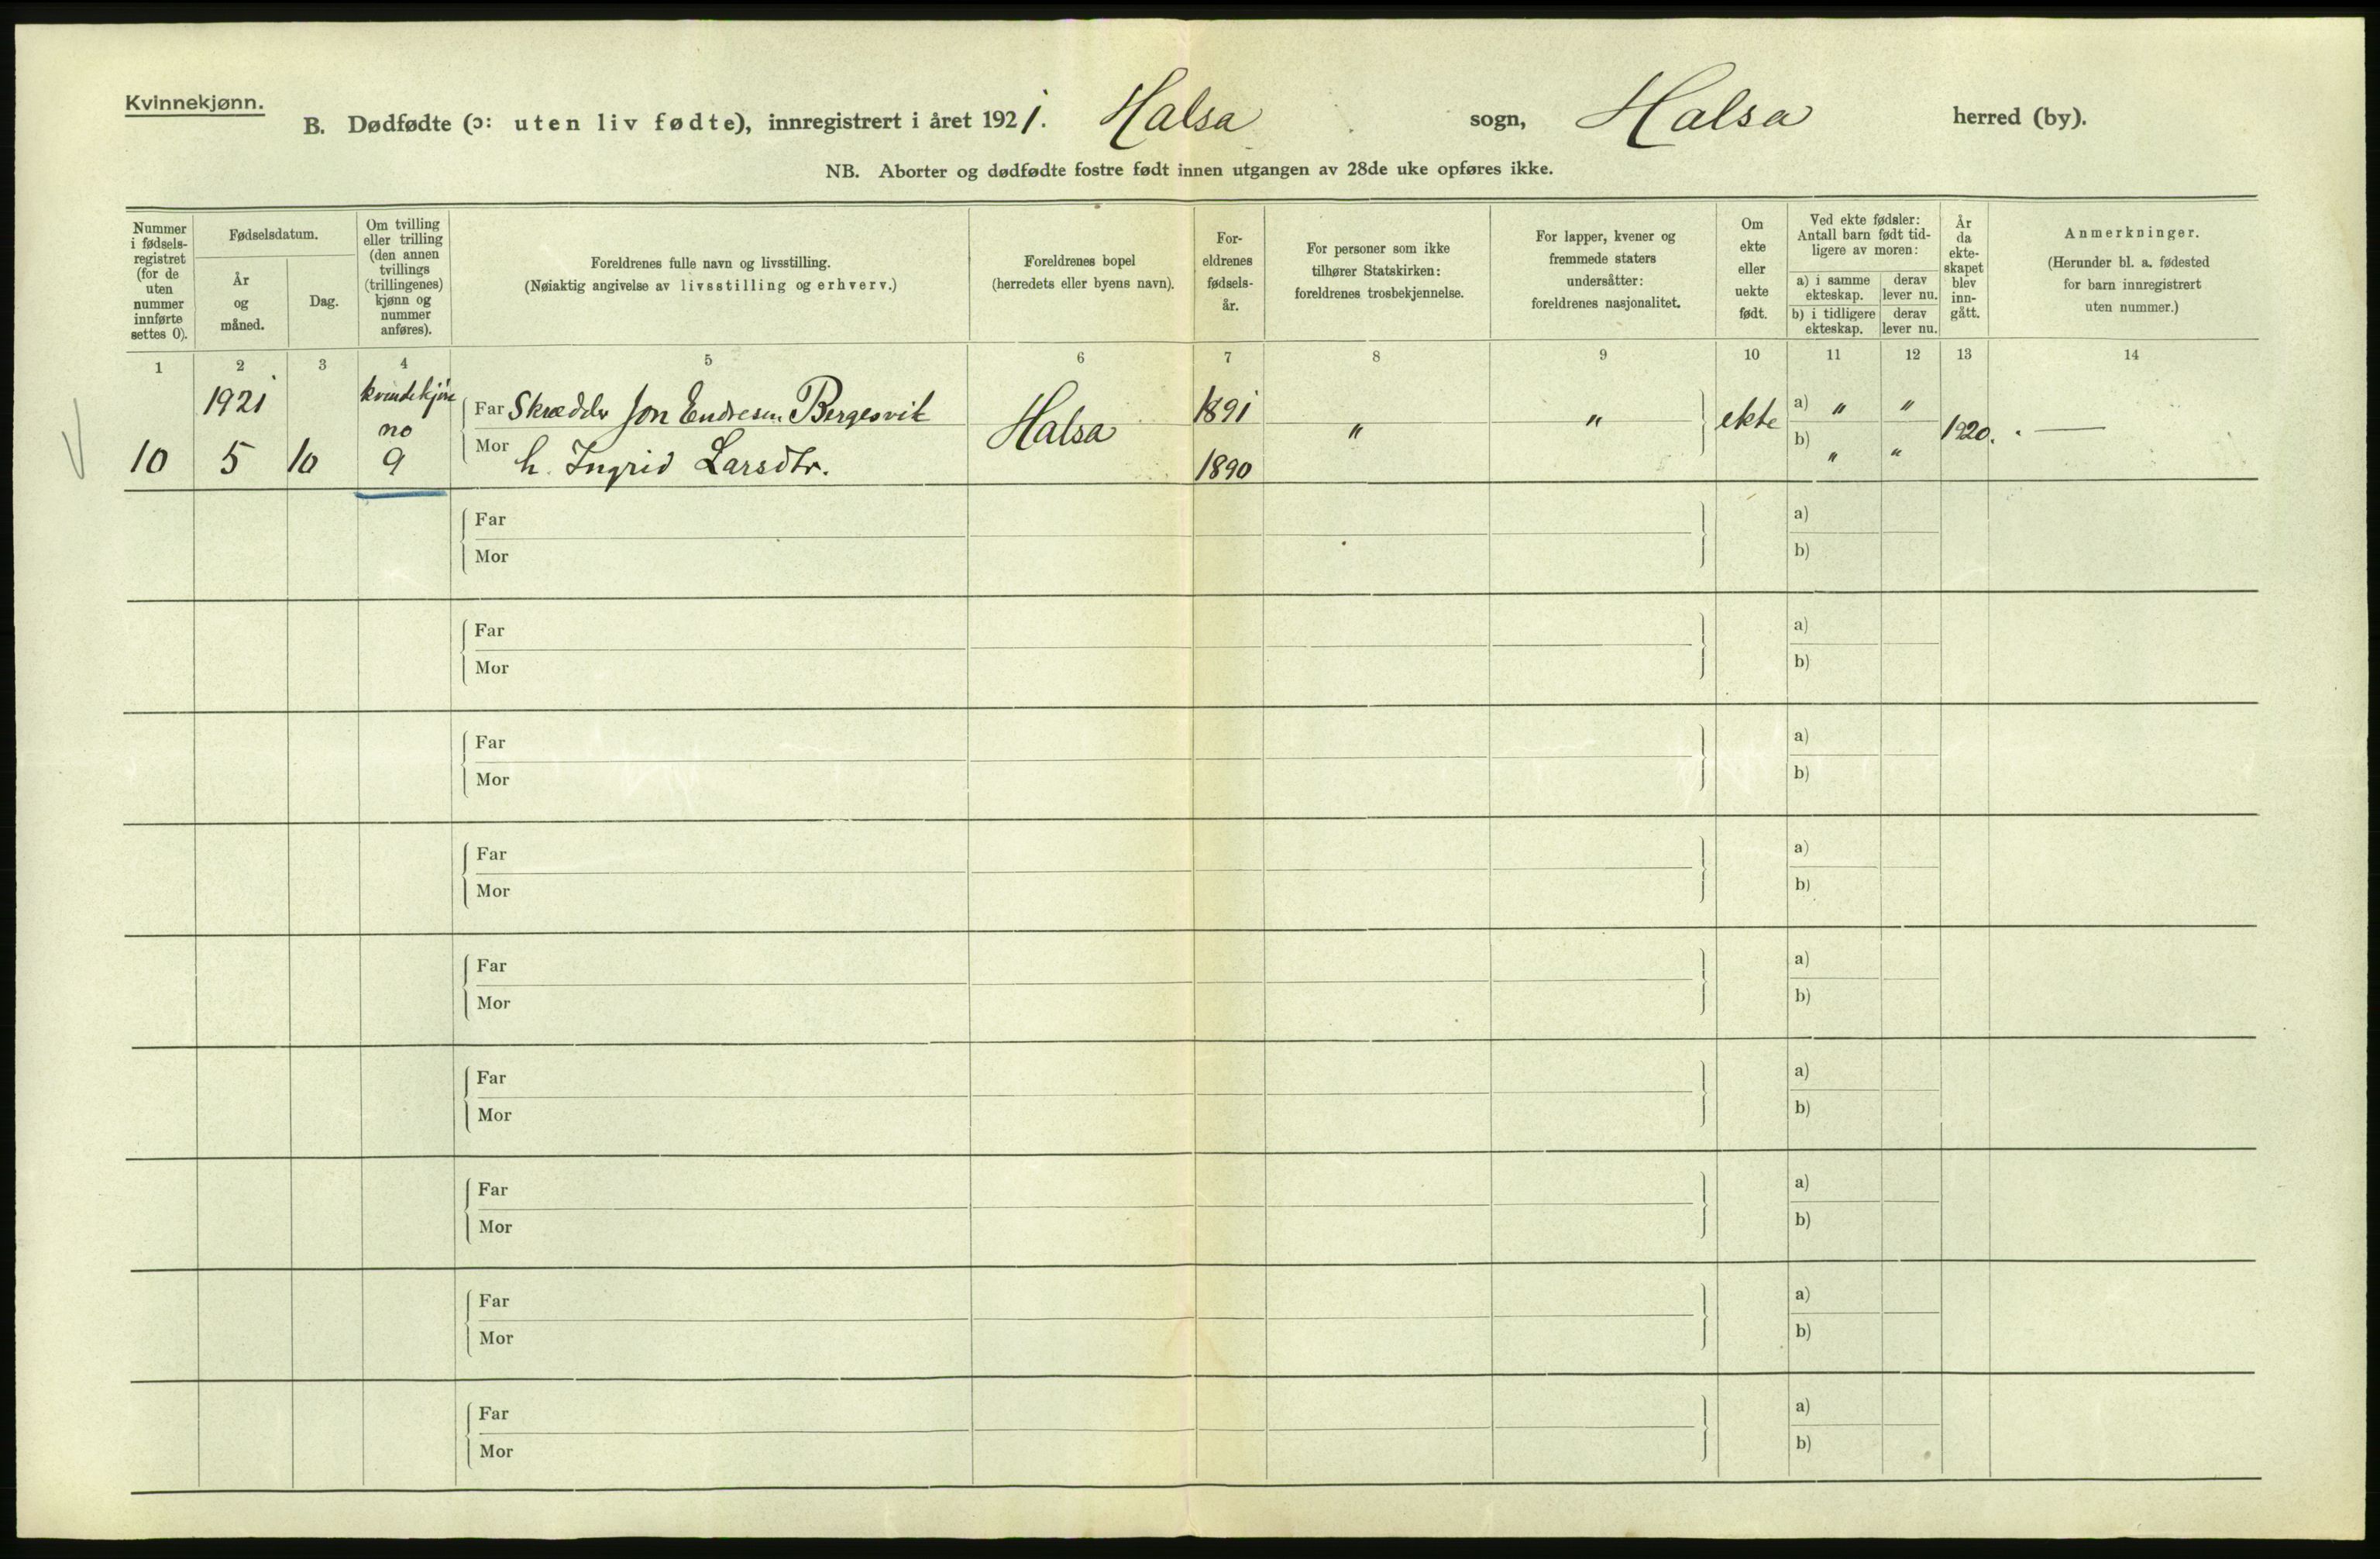 Kvinnekjønn.
B. Dødfødte (ɔ: uten liv fødte), innregistrert i året 1921. Halsa sogn, Halsa herred (by).
NB. Aborter og dødfødte fostre født innen utgangen av 28de uke opføres ikke.
Nummer
i fødsels-
registret
(for de
uten
nummer
innførte
settes 0).
Fødselsdatum.
År
og
måned.
Dag.
Om tvilling
eller trilling
(den annen
tvillings
(trillingenes)
kjønn og
nummer
anføres).
Foreldrenes fulle navn og livsstilling.
(Nøiaktig angivelse av livsstilling og erhverv.)
Foreldrenes bopel
(herredets eller byens navn).
For-
eldrenes
fødsels-
år.
For personer som ikke
tilhører Statskirken:
foreldrenes trosbekjennelse.
For lapper, kvener og
fremmede staters
undersåtter:
foreldrenes nasjonalitet.
Om
ekte
eller
uekte
født.
Ved ekte fødsler:
Antall barn født tid-
ligere av moren:
a) i samme
ekteskap.
derav
lever nu.
b) i tidligere
ekteskap.
derav
lever nu.
År
da
ekte-
skapet
blev
inn-
gått.
Anmerkninger.
(Herunder bl. a. fødested
for barn innregistrert
uten nummer.)
1 2 3 4 5 6 7 8 9 10 11 12 13 14
10
1921
5
10
kvindekjøn
no
9
Far Skrædder Jon Endresen Bergesvik
Mor h. Ingrid Larsdtr.
Halsa
1891
1890
"
"
ekte
a) " "
b) " "
1920.
Far a)
Mor b)
Far a)
Mor b)
Far a)
Mor b)
Far a)
Mor b)
Far a)
Mor b)
Far a)
Mor b)
Far a)
Mor b)
Far a)
Mor b)
Far a)
Mor b)